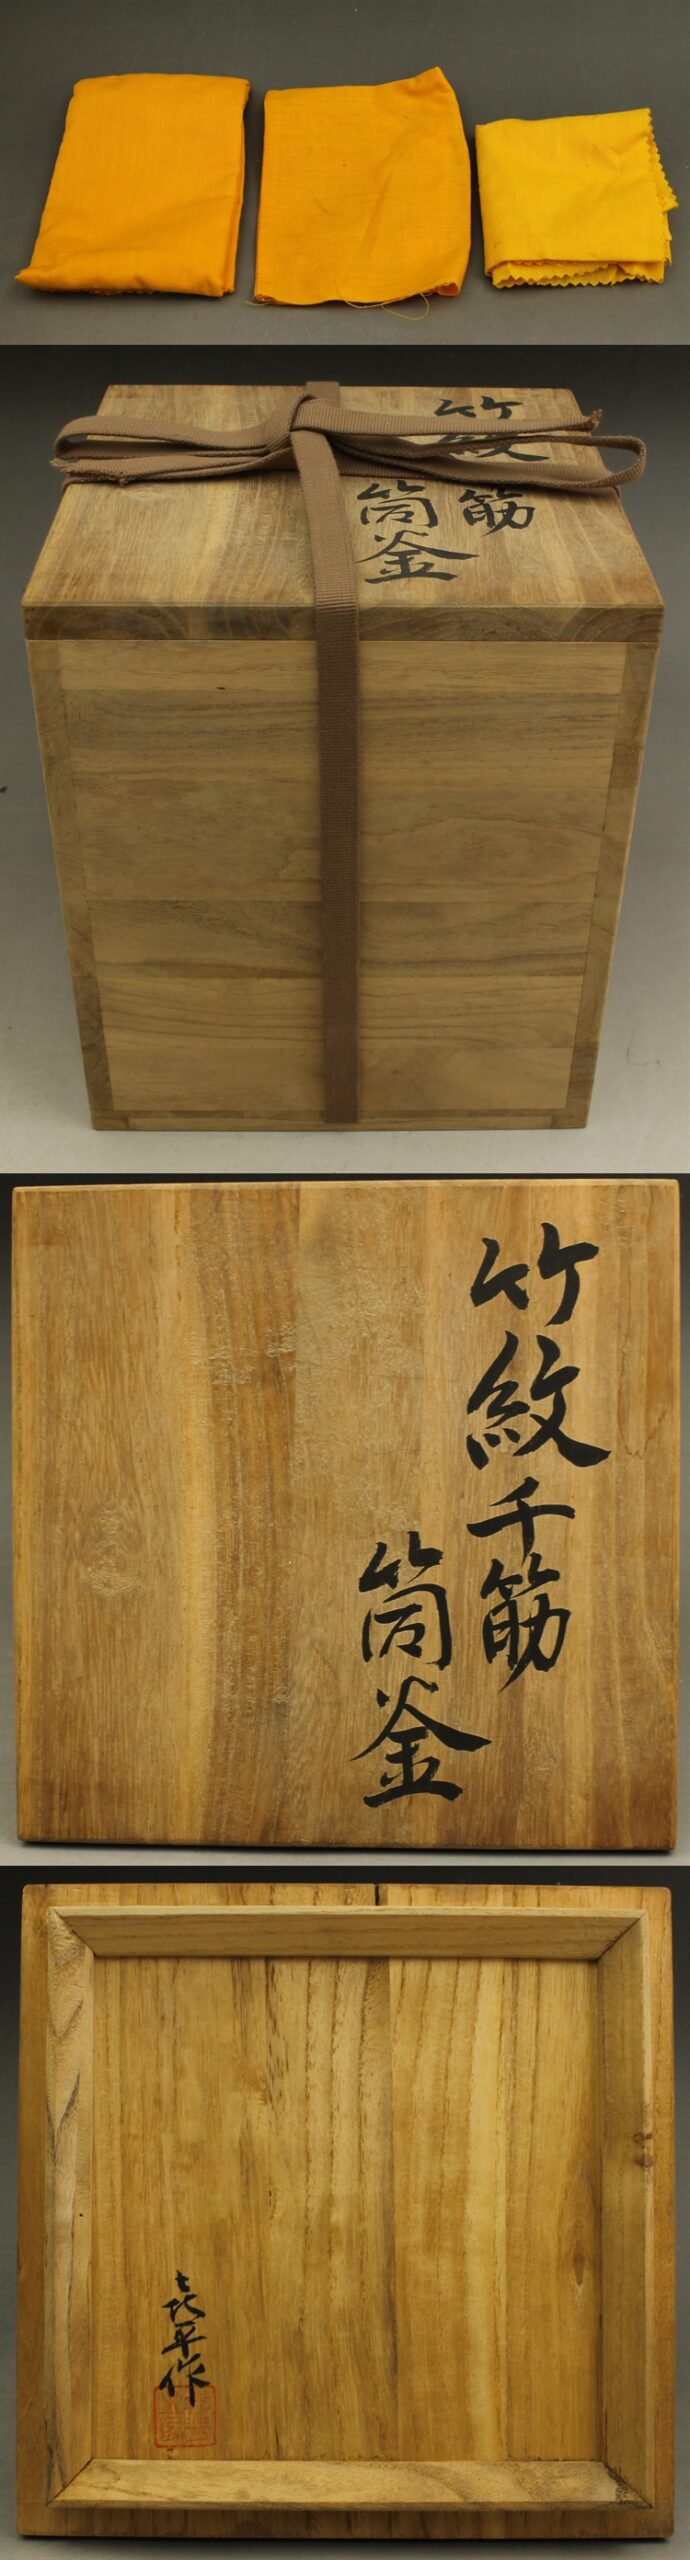 竹紋
筋
筒釜
竹紋千筋
筒釜
喜平作